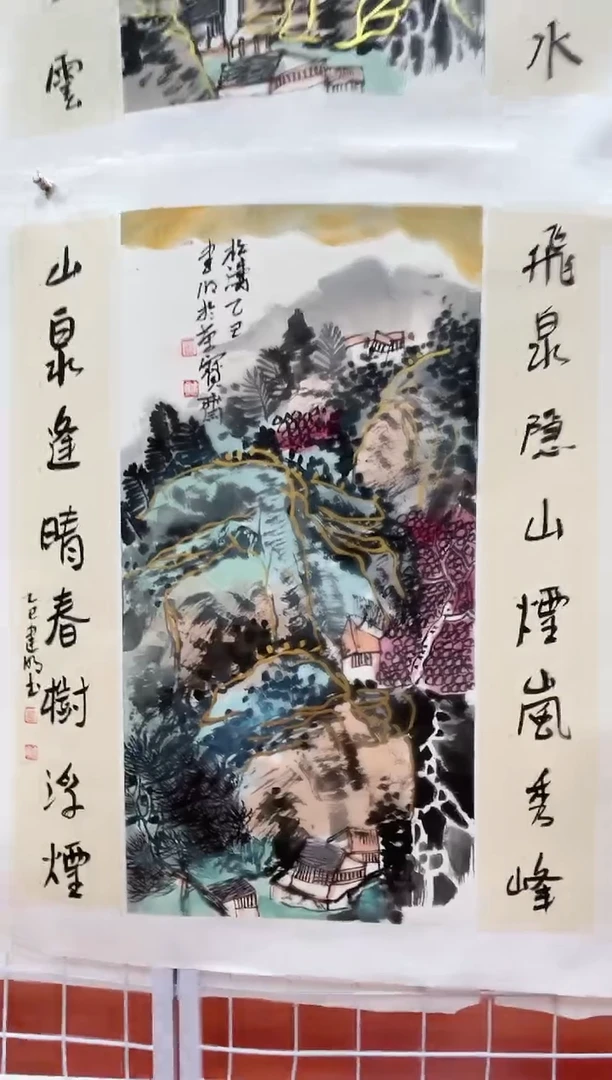 水
雲
飛泉隐山煙嵐秀峰
乙巳
建明於荣寳齋
山泉逢晴春樹浮煙
乙巳建明书